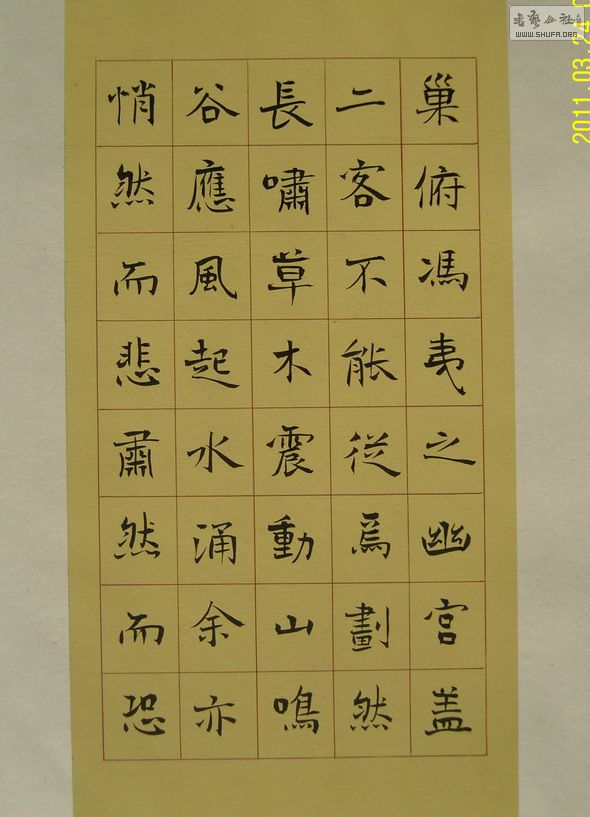 巢俯馮夷之幽宮盖
二客不能從焉劃然
長嘯草木震動山鳴
谷應風起水涌余亦
悄然而悲肅然而恐
書藝公社
WWW.SHUFA.ORG